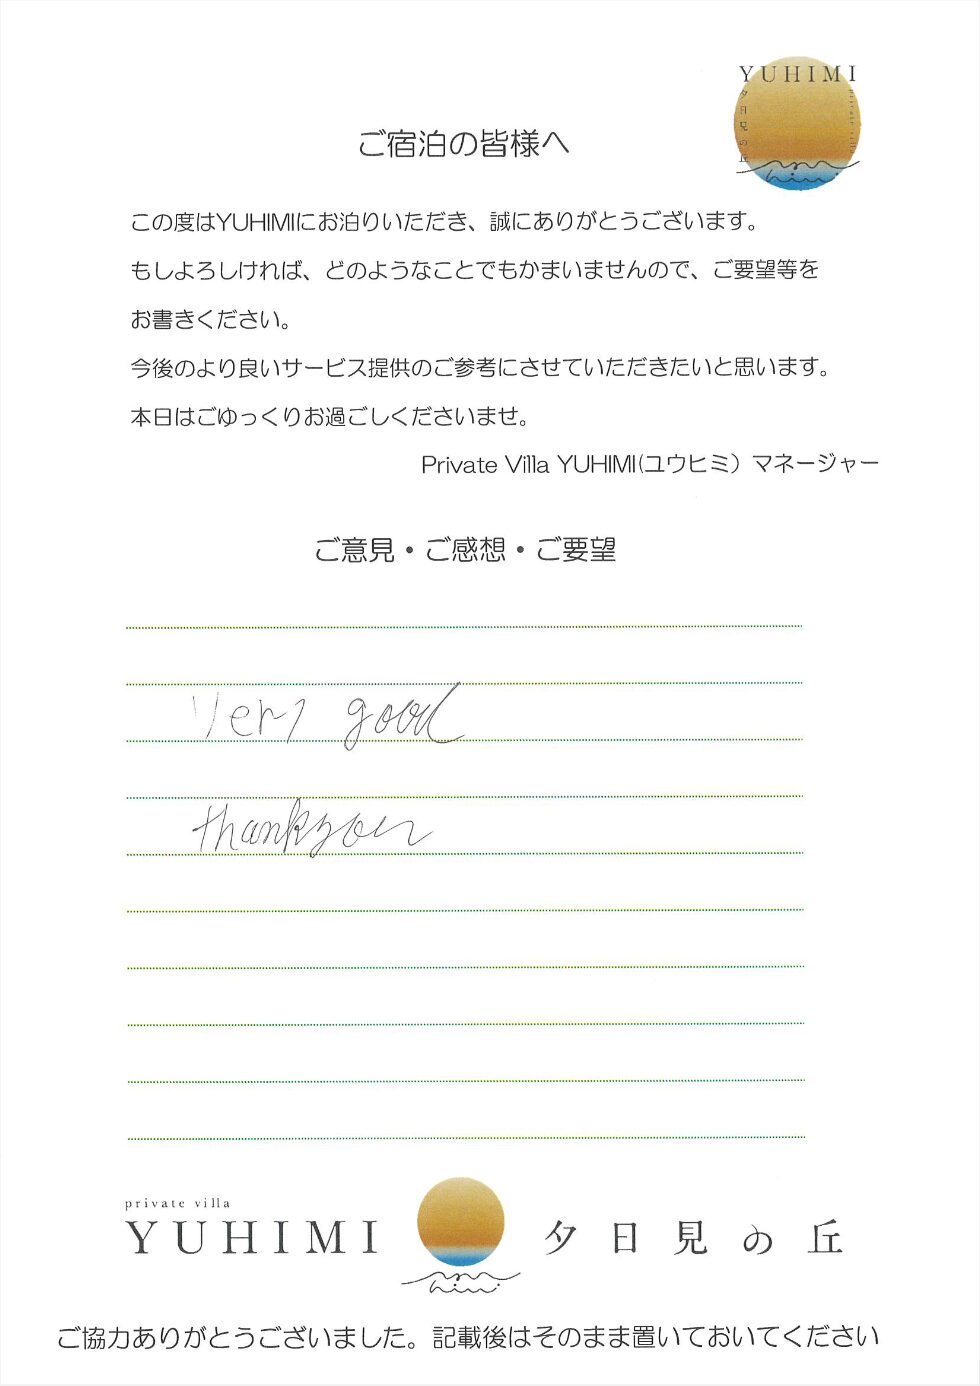 YUHIMI
夕日見の丘
private villa
ご宿泊の皆様へ
この度はYUHIMIにお泊りいただき、誠にありがとうございます。
もしよろしければ、どのようなことでもかまいませんので、ご要望等を
お書きください。
今後のより良いサービス提供のご参考にさせていただきたいと思います。
本日はごゆっくりお過ごしくださいませ。
Private Villa YUHIMI(ユウヒミ）マネージャー
ご意見・ご感想・ご要望
Very good
thankyou
private villa
YUHIMI 夕日見の丘
ご協力ありがとうございました。記載後はそのまま置いておいてください